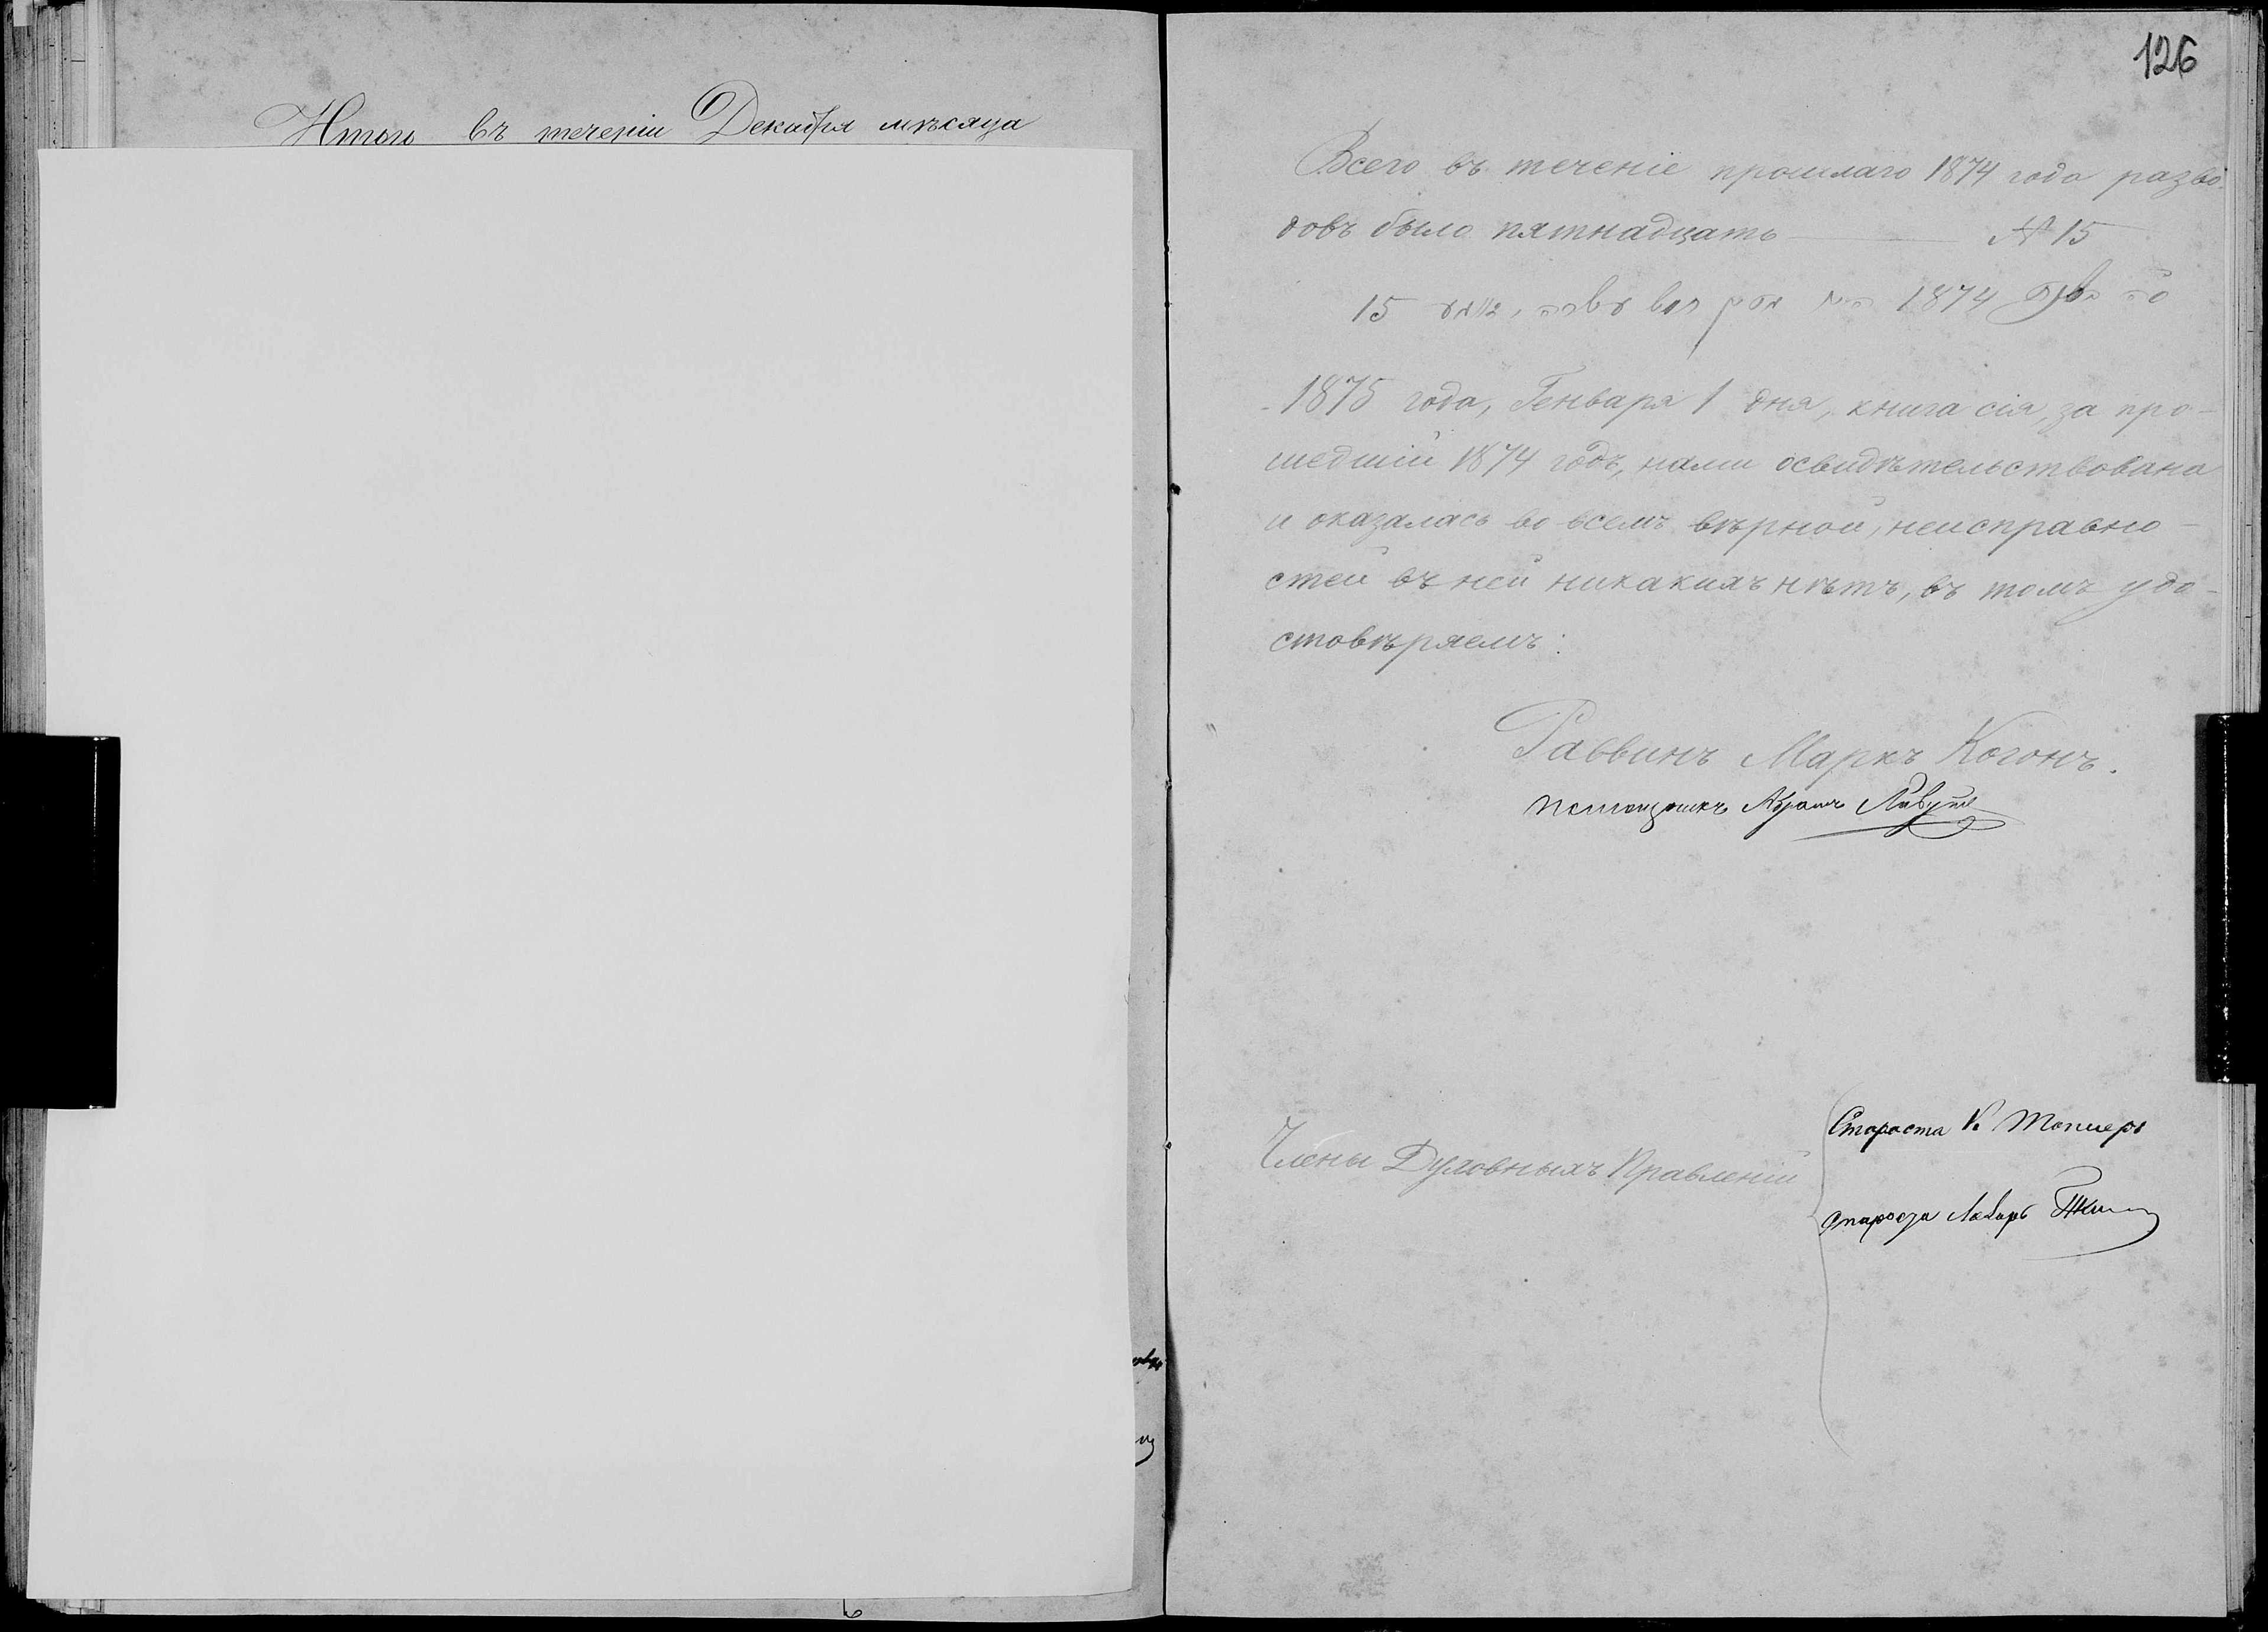 Итого въ теченіи Декабря мѣсяца
126
Всего въ теченіе прошлаго 1874 года разво-
довъ было пятнадцать — № 15
15 1874
1875 года, Генваря 1 дня, книга сія, за про-
шедшій 1874 годъ, нами освидѣтельствована
и оказалась во всемъ вѣрной, неисправно-
стей въ ней никакихъ нѣтъ, въ томъ удо-
стовѣряемъ:
Раввинъ Маркъ Когонъ.
помощникъ Абрамъ
Члены Духовныхъ Правленій
Староста
староста